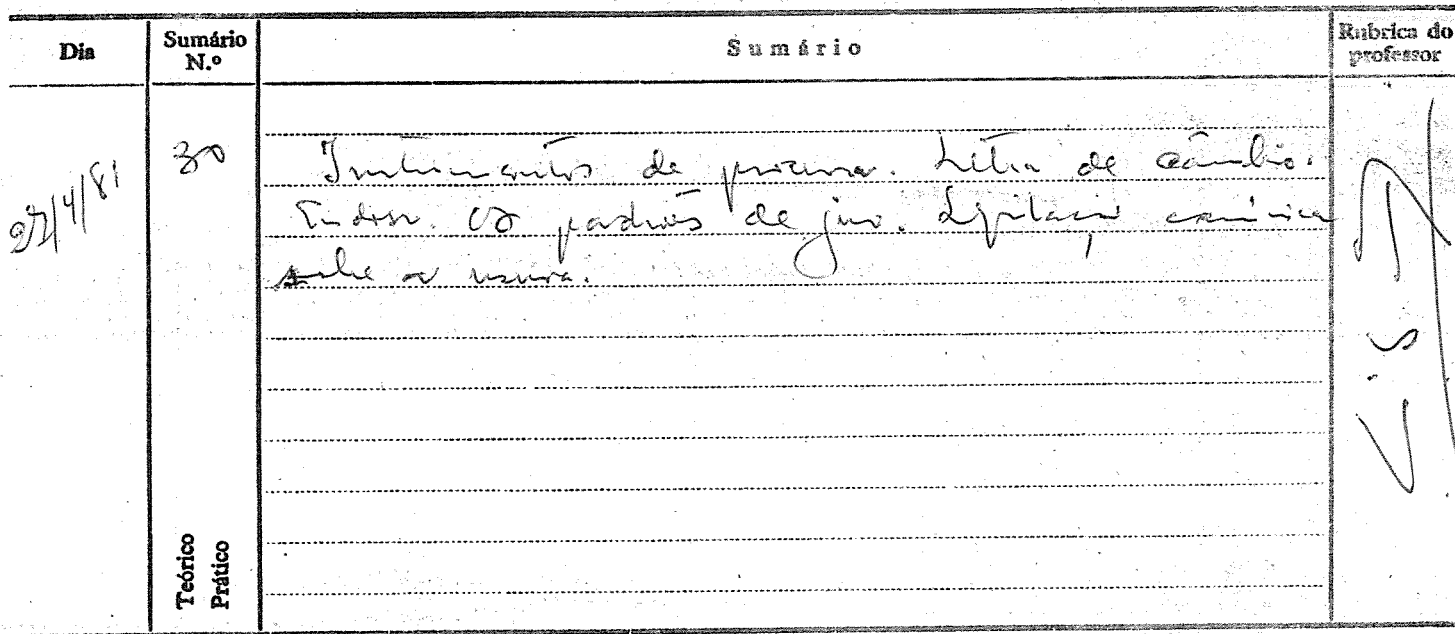 Dia
Sumário N.º
Sumário
Rubrica do professor
27/4/81
30
Instrumentos de . Letra de câmbio.
Endosso. Os padrões de juro. Legislação canónica
sobre a usura.
Teórico
Prático